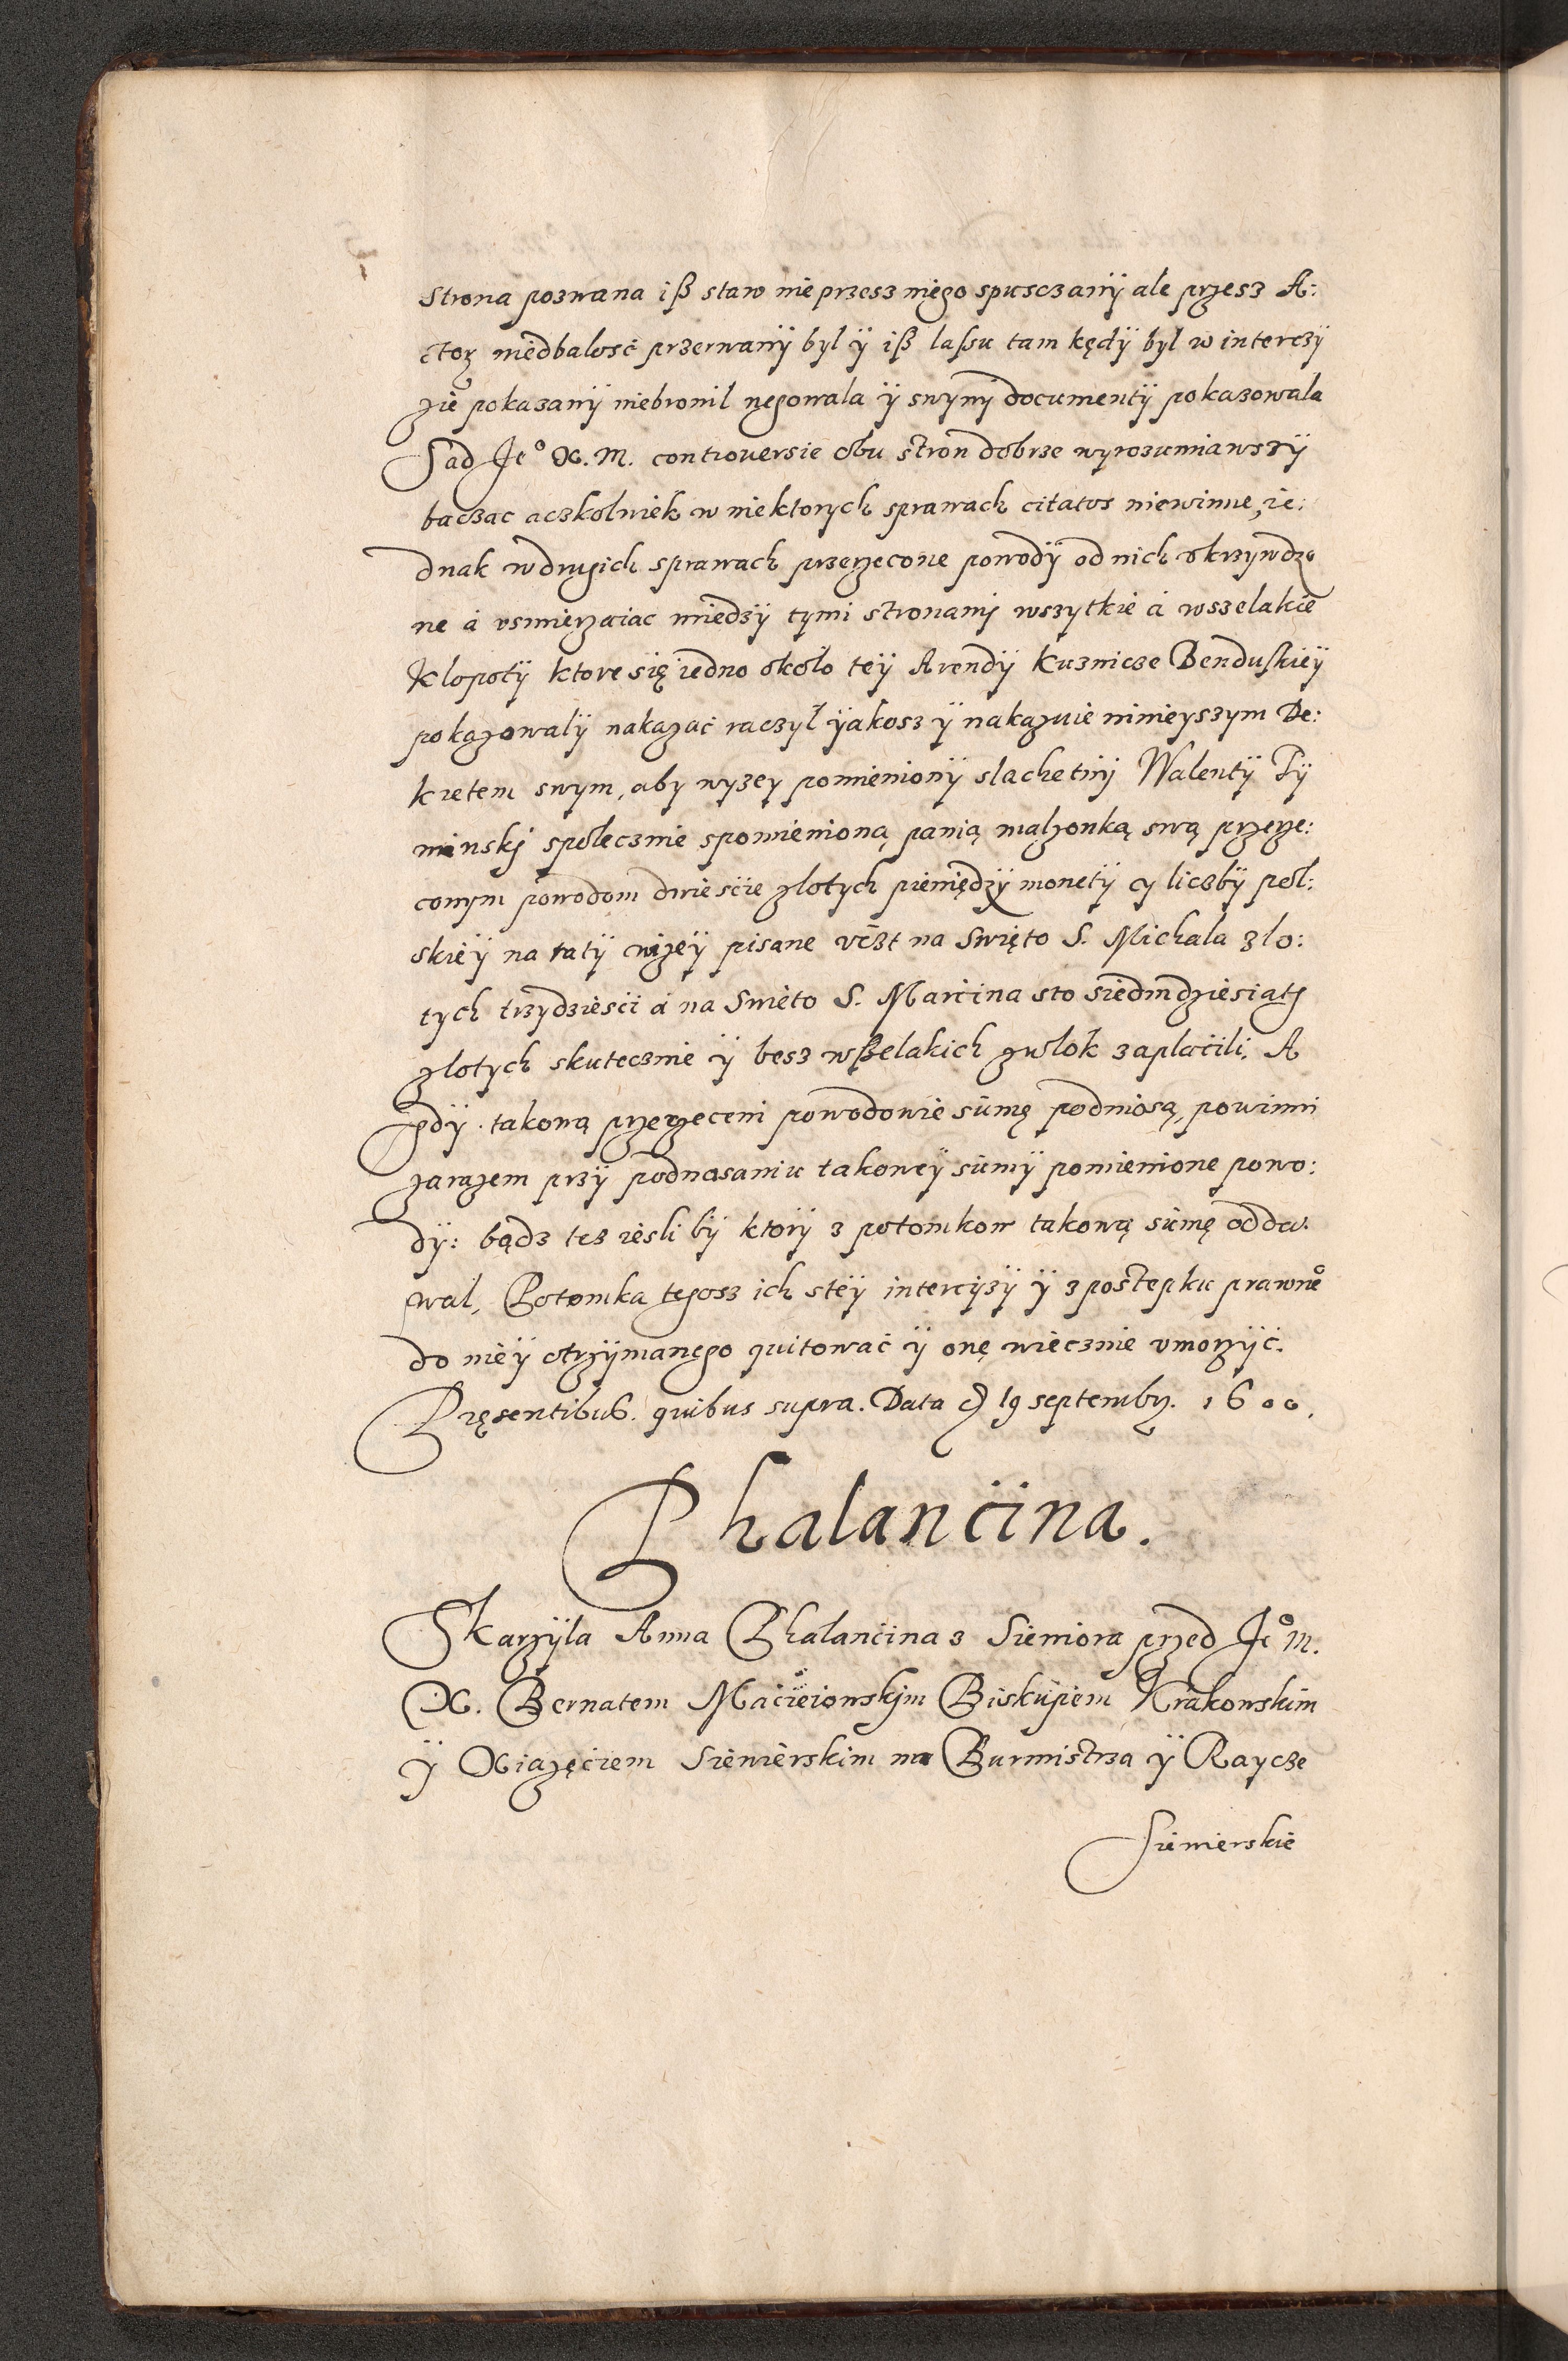 Strona pozwana iß staw nie przesz niego spusczanÿ ale przesz A:
ctorz niedbalosć przerwanÿ byl ÿ iß lassu tam kędÿ byl w interczÿ
zie pokazanÿ niebronil negowala ÿ swymj documentÿ pokazowala
Sąd Je° X. M. controuersie obu stron dobrze wyrozumiawszÿ
baczac aczkolwiek w niektorych sprawach citatos niewinne, ie:
dnak w drugich sprawach przerzecone powodÿ od nich vkrzywdzo
ne á vsmierzaiac miedzÿ tymi stronamj wszytkie á wszelakie
Klopotÿ ktore się iedno około teÿ Arendÿ Kuznicze Benduskieÿ
pokazowalÿ nakazać raczył ÿakosz ÿ nakazuie ninieyszym De:
kretem swym, aby wyzey pomienionÿ slachetnÿ Walentÿ Tÿ
minskj społecznie spomienioną panią małzonką swą przerze:
conym powodom dwiescie zlotych pieniędzÿ monetÿ y liczbÿ pol:
skieÿ na ratÿ nizeÿ pisane vczt na Swięto S. Michala zlo:
tych trzydziesci á na Swieto S. Marcina sto siedmdziesiątj
zlotych skutecznie ÿ besz wßelakich zwlok zaplacili. A
gdÿ takową przerzeceni powodowie sumę podniosą, powinni
zarazem przÿ podnosaniu takoweÿ sumÿ pomienione powo:
dÿ: bądz tez iesli bÿ ktorÿ z potomkow takową sumę odda:
wal, Potomka tegosz ich steÿ intercÿzÿ ÿ z postepku prawne°
do nieÿ otrzÿmanego quitować ÿ onę wiecznie vmorzÿć.
Pręsentibus quibus supra. Data 19 septembr. 1600.
Phalancina.
Skarzÿla Anna Phalancina z Siewiora przed Je° M.
X. Bernatem Macieiowskjm Biskupiem Krakowskim
ÿ Xiązęciem Siewierskim na Burmistrza ÿ Raycze
Siewierskie